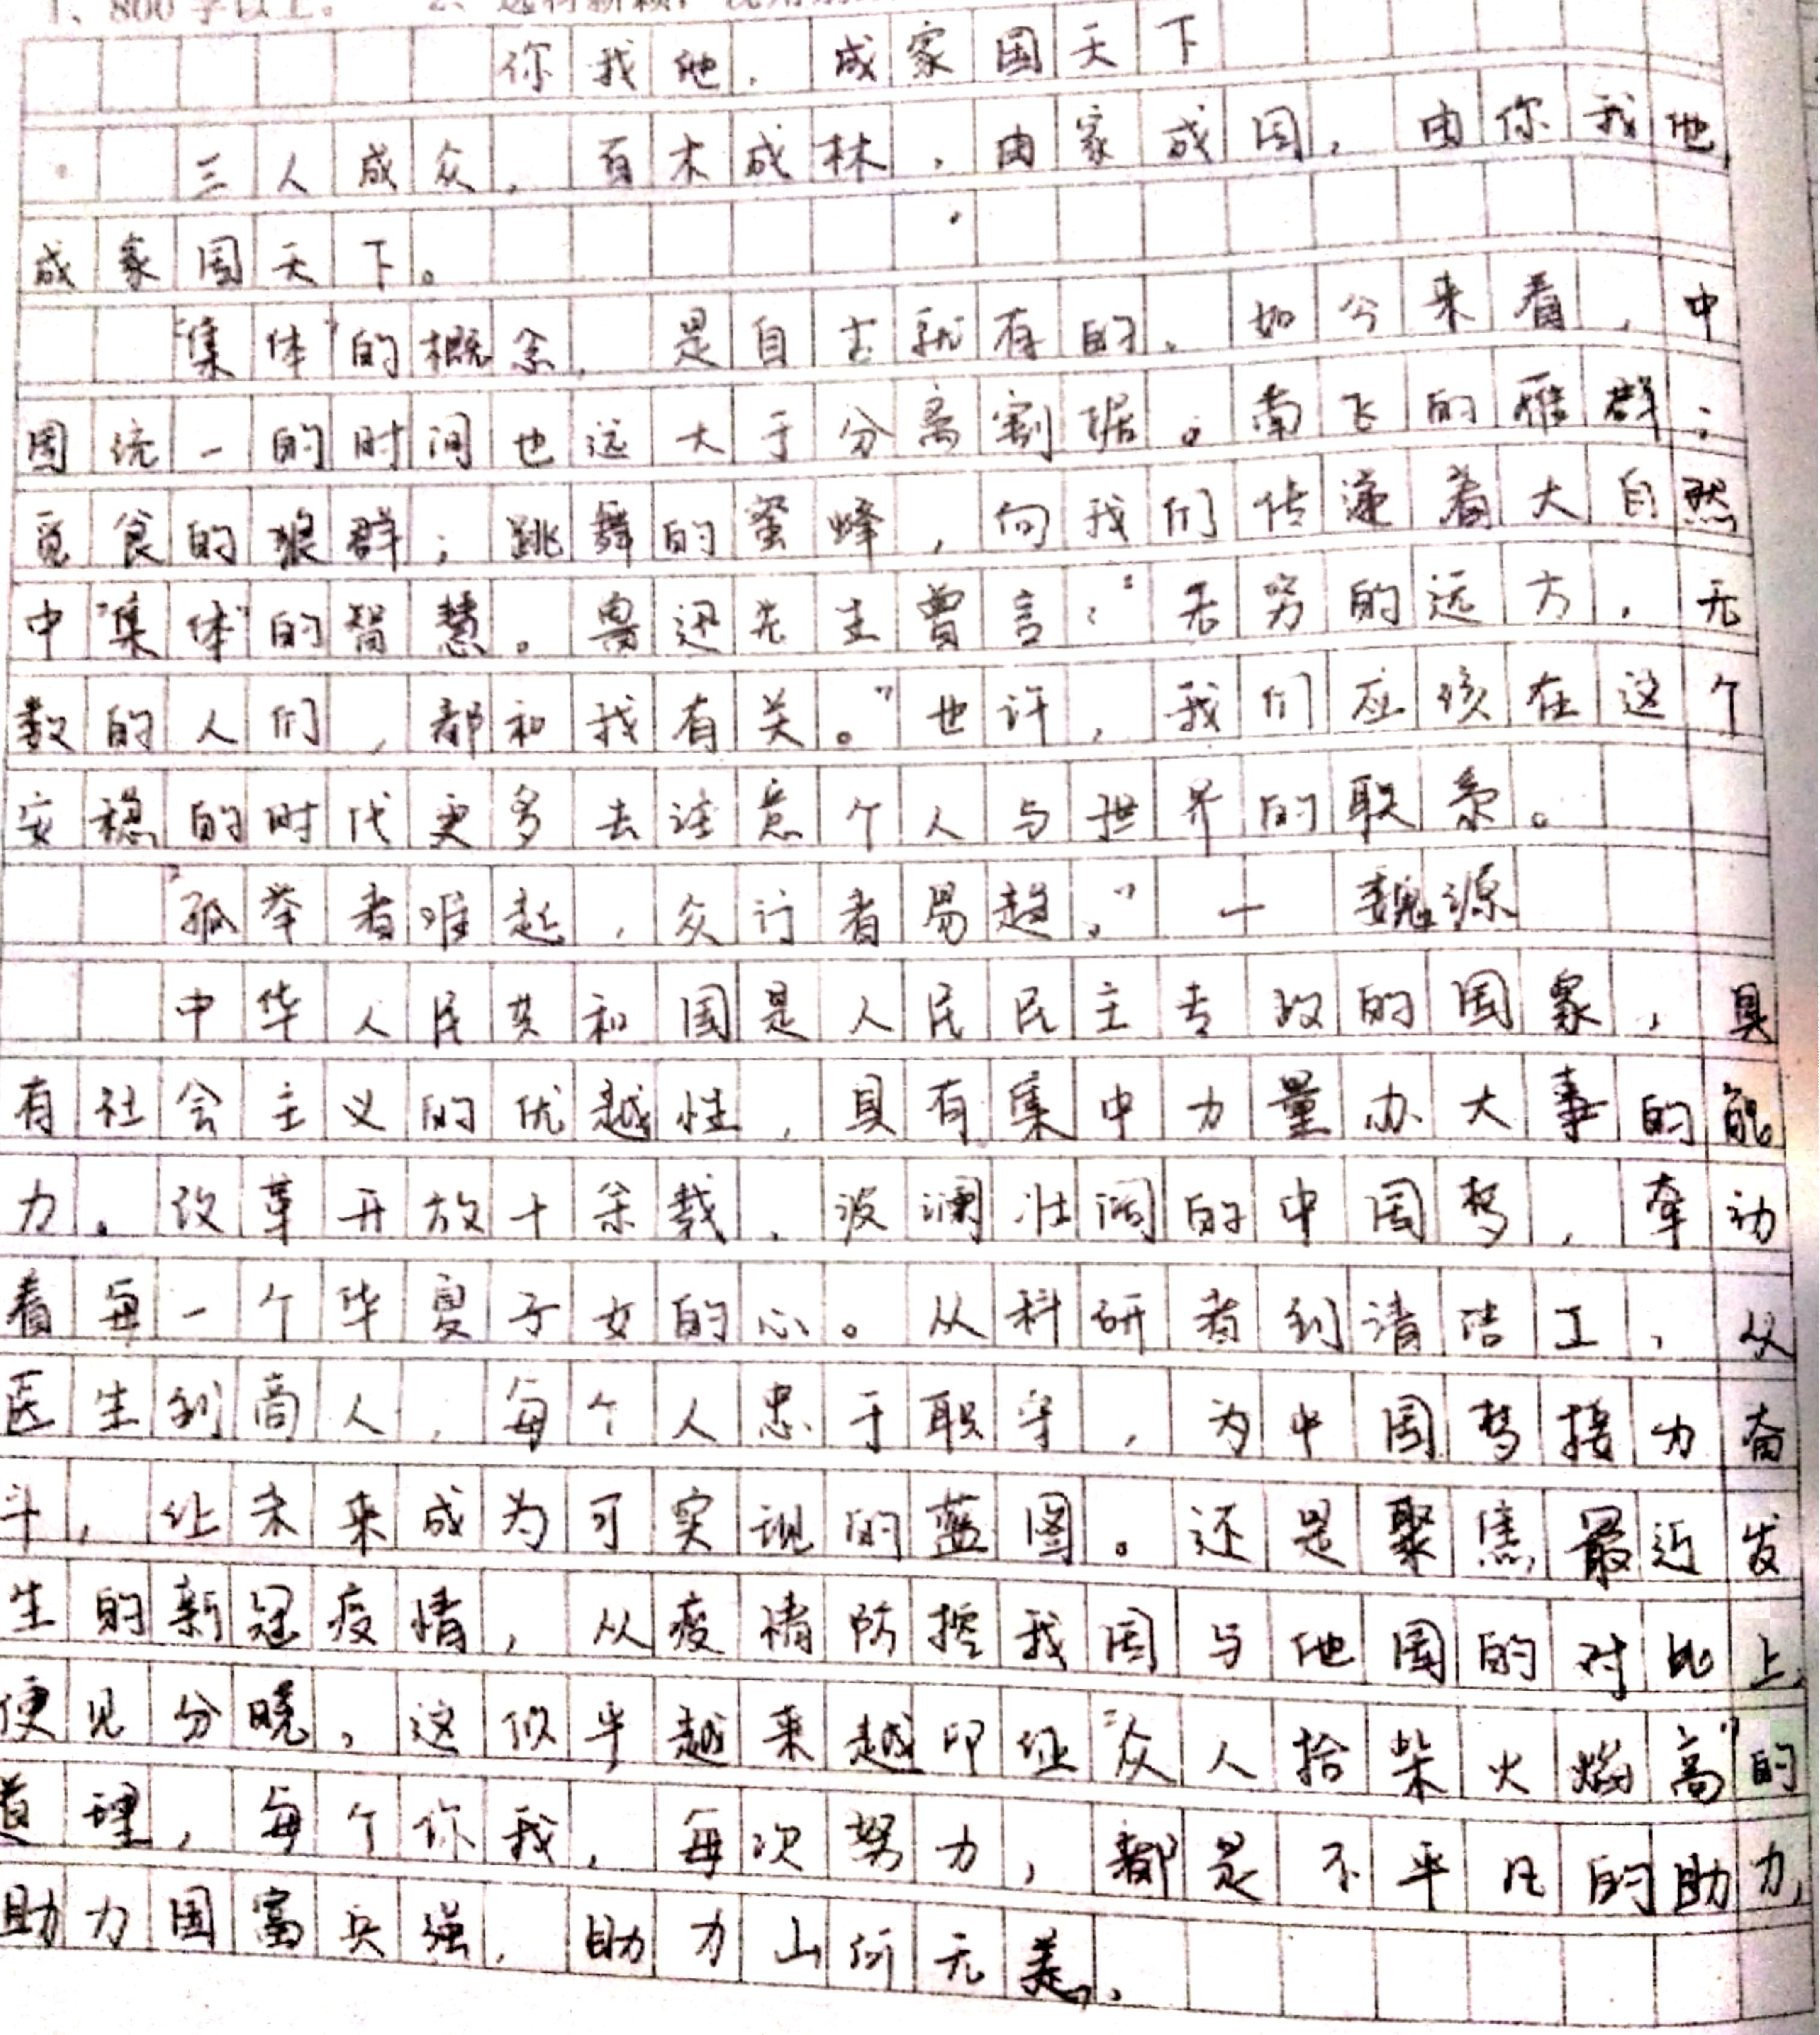 1、800字以上。 2、选材新颖，
你我他，成家国天下
三人成众，百木成林，由家成国，由你我他，
成家国天下。
“集体”的概念，是自古就有的，如今来看，中
国统一的时间也远大于分离割据。南飞的雁群；
觅食的狼群；跳舞的蜜蜂，向我们传递着大自然
中“集体”的智慧。鲁迅先生曾言：“无穷的远方，无
数的人们，都和我有关。”也许，我们应该在这个
安稳的时代更多去注意个人与世界的联系。
“孤举者难起，众行者易趋。”—魏源
中华人民共和国是人民民主专政的国家，具
有社会主义的优越性，具有集中力量办大事的能
力。改革开放十余载，波澜壮阔的中国梦，牵动
着每一个华夏子女的心。从科研者到清洁工，从
医生到商人，每个人忠于职守，为中国梦接力奋
斗，让未来成为可实现的蓝图。还是聚焦最近发
生的新冠疫情，从疫情防控我国与他国的对比上，
便见分晓，这似乎越来越印证“众人拾柴火焰高”的
道理，每个你我，每次努力，都是不平凡的助力，
助力国富兵强，助力山河无恙。